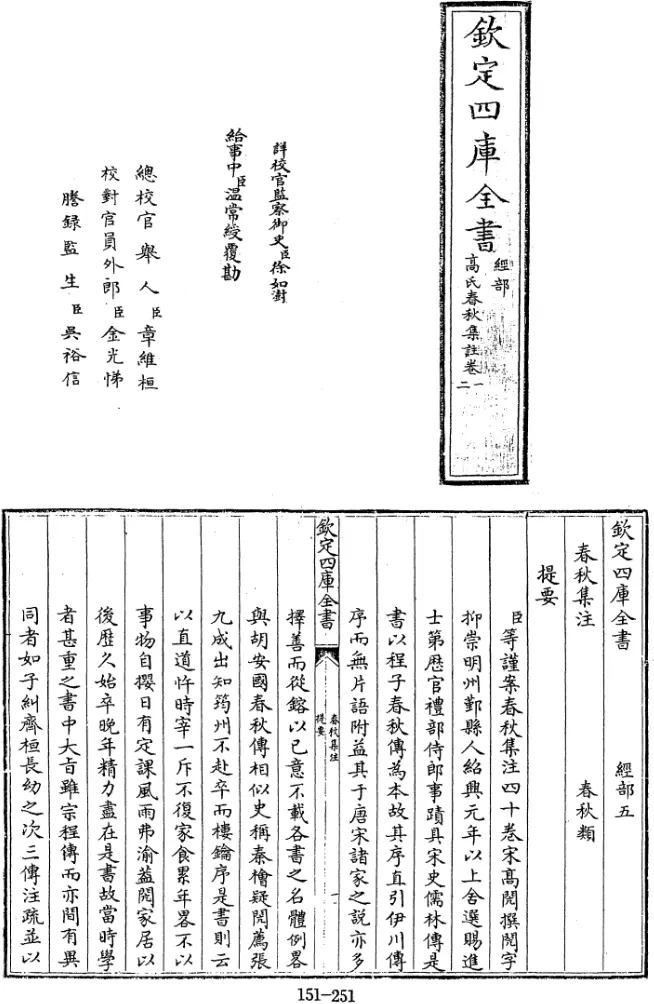 欽定四庫全書
經部
高氏春秋集註卷一
二
詳校官監察御史臣徐如澍
給事中臣温常綬覆勘
總校官舉人臣章維桓
校對官員外郎臣金光悌
謄録監生臣吳裕信
欽定四庫全書 經部五
春秋集注 春秋類
提要
臣等謹案春秋集注四十卷宋髙閌撰閌字
抑崇明州鄞縣人紹興元年以上舍選賜進
士第歴官禮部侍郎事蹟具宋史儒林傳是
書以程子春秋傳為本故其序直引伊川傳
序而無片語附益其于唐宋諸家之説亦多
欽定四庫全書
春秋集注
提要
一
擇善而從鎔以已意不載各書之名體例畧
與胡安國春秋傳相似史稱秦檜疑閌薦張
九成出知筠州不赴卒而樓鑰序是書則云
以直道忤時宰一斥不復家食累年畧不以
事物自攖日有定課風雨弗渝葢閌家居以
後歴久始卒晚年精力盡在是書故當時學
者甚重之書中大㫖雖宗程傳而亦間有異
同者如子糾齊桓長幼之次三傳注疏並以
151-251